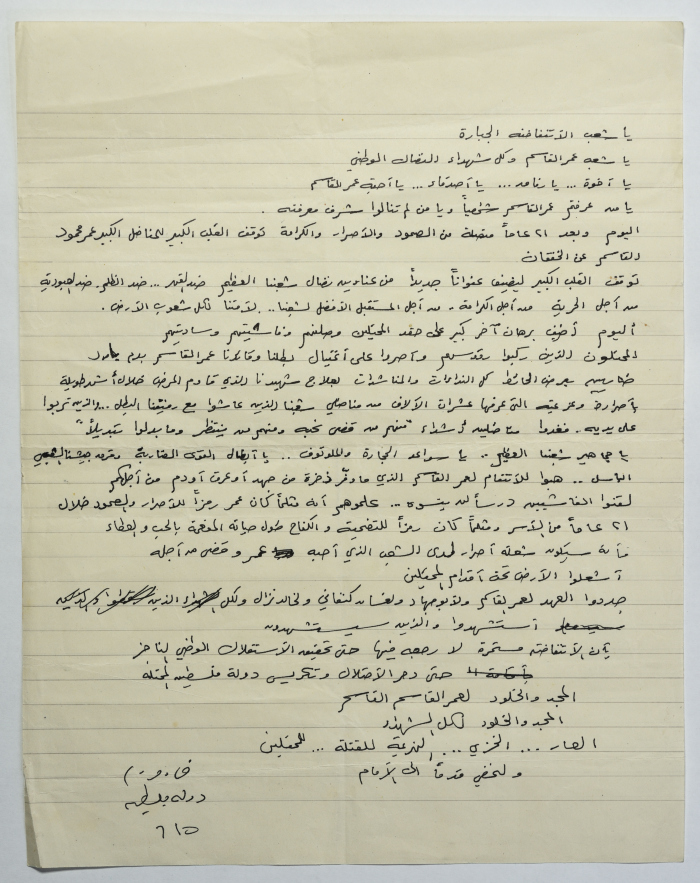 يا شعب الانتفاضة الجبارة
يا شعب عمر القاسم وكل شهداء النضال الوطني
يا أخوة ... يا رفاق ... يا أصدقاء ... يا أحبة عمر القاسم
يا من عرفتم عمر القاسم شخصياً ويا من لم تنالوا شرف معرفته .
اليوم وبعد ٢١ عاماً متصلة من الصمود والاصرار والكرامة توقف القلب الكبير للمناضل الكبير عمر محمود
القاسم عن الخفقان
توقف القلب الكبير ليضيف عنواناً جديداً من عناوين نضال شعبنا العظيم ضد القهر ... ضد الظلم . ضد العبودية
من أجل الحرية من أجل الكرامة . من أجل المستقبل الأفضل لشعبنا .. لأمتنا لكل شعوب الأرض .
اليوم أضيف برهان آخر كبير على حقد المحتلين وصلفهم وفاشيتهم وساديتهم
المحتلون الذين ركبوا رؤوسهم وأصروا على أغتيال بطلنا وقائدنا عمر القاسم بدم بارد
ضاربين بعرض الحائط كل النداءات والمناشدات لعلاج شهيدنا الذي قاوم المرض خلال أشهر طويلة
بإصراره وعزيمته التي عرفها عشرات الآلاف من مناضلي شعبنا الذين عاشوا مع رفيقنا البطل ... والذين تربوا
على يديه . فغدوا مناضلين أشداء "منهم من قضى نحبه ومنهم من ينتظر وما بدلوا تبديلاً"
يا جماهير شعبنا العظيم .. يا سواعد الحجارة والملوتوف .. يا أبطال القوى الضاربة وقوى جيشنا الشعبي
الباسل .. هبوا للانتقام لعمر القاسم الذي ما وفر ذرة من جهد أو عرق أو دم من أجلكم
لقنوا الفاشيين درساً لن ينسوه ... علموهم أنه مثلما كان عمر رمزاً للاصرار والصمود خلال
٢١ عاماً من الأسر ومثلما كان رمزاً للتضحية والكفاح طول حياته المفعمة بالحب والعطاء
فأنه سيكون شعلة أصرار لهدي الشعب الذي أحبه عمر وقضى من أجله
أشعلوا الأرض تحت أقدام المحتلين
جددوا العهد لعمر القاسم ولأبو جهاد ولغسان كنفاني ولخالد نزال ولكل الشهداء الذين
أستشهدوا والذين سيستشهدون
بأن الانتفاضة مستمرة لا رجعة فيها حتى تحقيق الاستقلال الوطني الناجز
حتى دحر الاحتلال وتكريس دولة فلسطين المحتلة
المجد والخلود لعمر القاسم القاسم
المجد والخلود لكل الشهداء
العار ... الخزي ... الهزيمة للقتلة ... للمحتلين
ولنمضي قدماً الى الأمام
دولة فلسطين
٦/٥